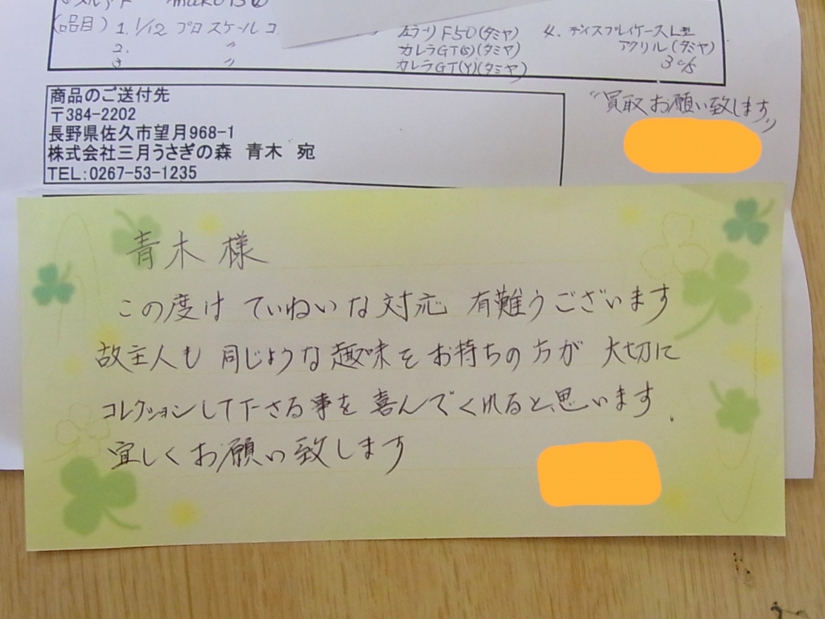 (品目) 1. 1/12 プロスケールコ
フェラーリ F50(タミヤ)
2. 〃
カレラGT(S)(タミヤ)
3 〃
カレラGT(Y)(タミヤ)
4. ディスプレイケースL型
アクリル(タミヤ)
3
"買取お願い致します"
商品のご送付先
〒384-2202
長野県佐久市望月968-1
株式会社三月うさぎの森 青木 宛
TEL:0267-53-1235
青木様
この度は ていねいな対応 有難うございます
故主人も 同じような趣味をお持ちの方が 大切に
コレクションして下さる事を 喜んでくれると思います.
宜しくお願い致します